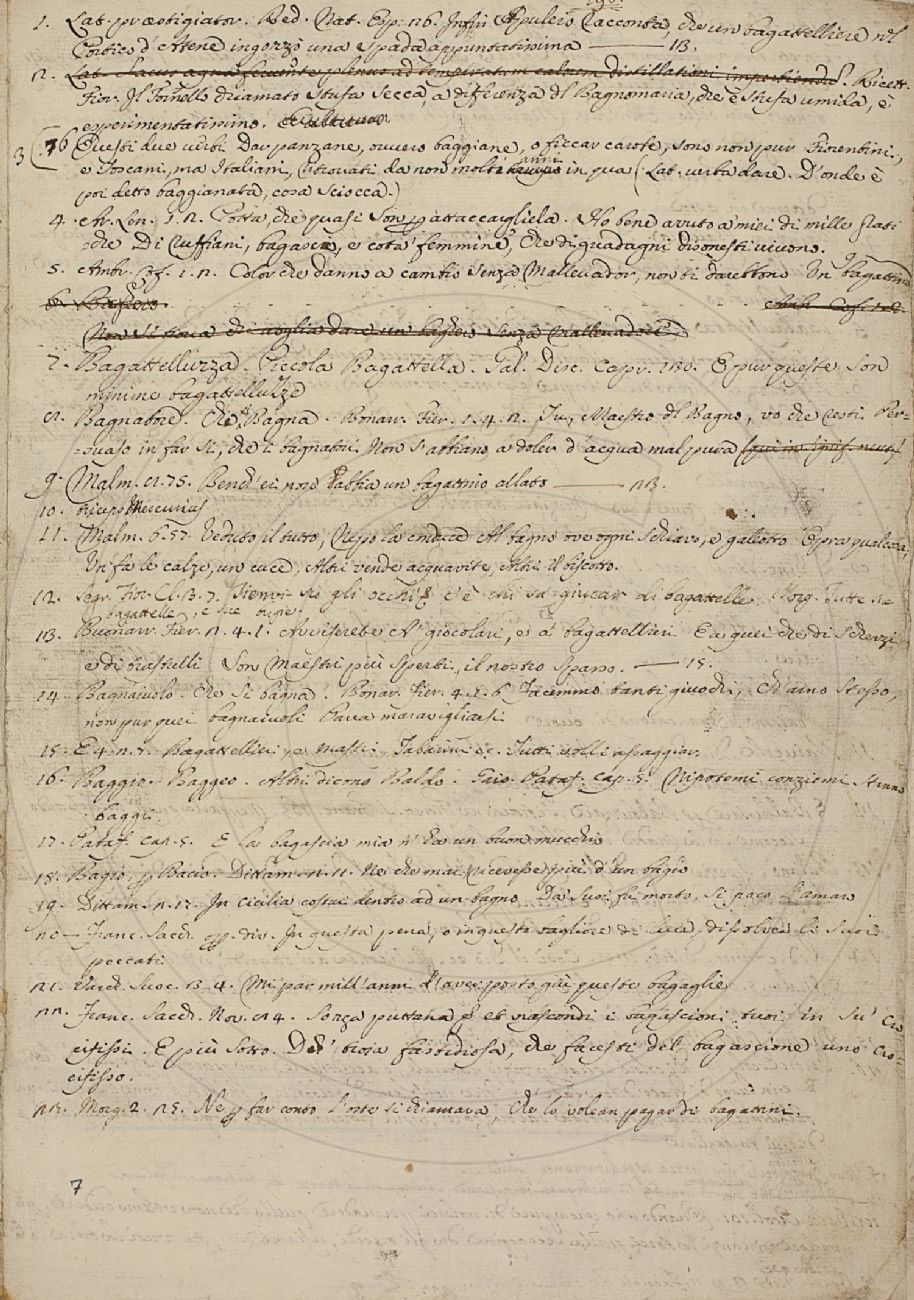 1. Lat. præstigiator. Red. Nat. Esp. 26. Infin Apuleio racconta, che un bagattelliere nel
Portico d'Atene ingozzò una spada appuntatissima —— 13.
2. Ricett.
Fior. Il Fornello chiamato Stufa secca, a differenza del Bagnomaria, che è stufa umida, è
esperimentatissimo.
3 (76 Questi due verbi Dar panzane, ovvero baggiane, o ficcar carote, sono non pur Fiorentini,
e Toscani, ma Italiani, ritrovati da non molti anni in qua (Lat. verba dare. D'onde è
poi detto baggianata, cosa sciocca.)
4. Ar. Len. 1. 2. Potta, che quasi son per attaccargliela. Ho bene avuto a' miei dì mille frati
che Di Ruffiani, bagascie, e cotai femmine, che di guadagni disonesti vivono.
5. Ambr. Cof. 1. 2. Color che danno a cambio senza Mallevador, non ti darebbono Un bagattino
6. Bagscio. Ambr. Cof. 1. 2.
Non si trova chi voglia dare un bagscio senza mallevadore
7. Bagattelluzza. Piccola Bagattella. Gal. Disc. Capr. 180. E pur queste son
minime bagattelluzze
8. Bagnatore. Che Bagna. Bonar. Fier. 1. 4. 2. Tu, Maestro del Bagno, vo che resti Per-
-suaso in far sì, che i bagnatori Non s'abbiano a doler d'acqua mal pura
9. Malm. 8. 75. Bench'ei non abbia un bagattino allato —— 23.
10. Mercurius
11. Malm. 6. 57. Veduto il tutto, Nepo la conduce Al bagno ove ogni schiavo, e galeotto Opra qualcosa,
Un fa le calze, un cuce, Altri vende acquavite, Altri il biscotto.
12. Segr. Fior. Cl. 3. 7. Tienvi sù gli occhi c'è chi sa giucar di bagattelle. Morg. Tutte sue
bagattelle, e sue origie.
13. Buonarr. Fier. 2. 4. 1. Avviserete A' giocolari, o a' bagattellieri E a quei che di scherzi
e di trastulli Son Maestri più sperti, il nostro spasso. —— 15.
14. Bagnaiuolo. Che si bagna. Bonar. Fier. 4. 1. 6 Facemmo tanti giuochi, Ch'Arno stesso,
non pur quei bagnaiuoli Parea maravigliarsi
15. E 4. 2. 7. Bagattellieri, e Mattii, Tabarini &c. Tutti volli assaggiar.
16. Baggio. Baggeo. Altri dicono Baldo. Pataf. Cap. 5. Nipotemi conziemi stanno
baggi.
17. Pataf. cap. 5. E la bagascia mia n'ha un buon mucchio
18. Bagio, p Bacio. Dittam. 2. 11. Ne che mai ricevesse più d'un bagio
19. Dittam. 2. 17. In Cicilia costui dentro ad un bagno Da' suoi fu morto, sì poco l'amaro
20— Franc. Sacch. opp. div. In questa pena, o in questo bagliore di luce, dissolvea li suoi
peccati
21. Varch. Suoc. 3. 4. Mi par mill'anni d'aver posto giù queste bagaglie
22. Franc. Sacch. Nov. 84. Sozza puttana che nascondi i bagascioni tuoi in su' Cro
cifissi. E più sotto. Deh' troia fastidiosa, che facesti del bagascione uno Cro-
cifisso.
23. Morg. 2. 25. Ne p far conto l'oste si chiamava, Che lo volean pagar di bagattini.
7